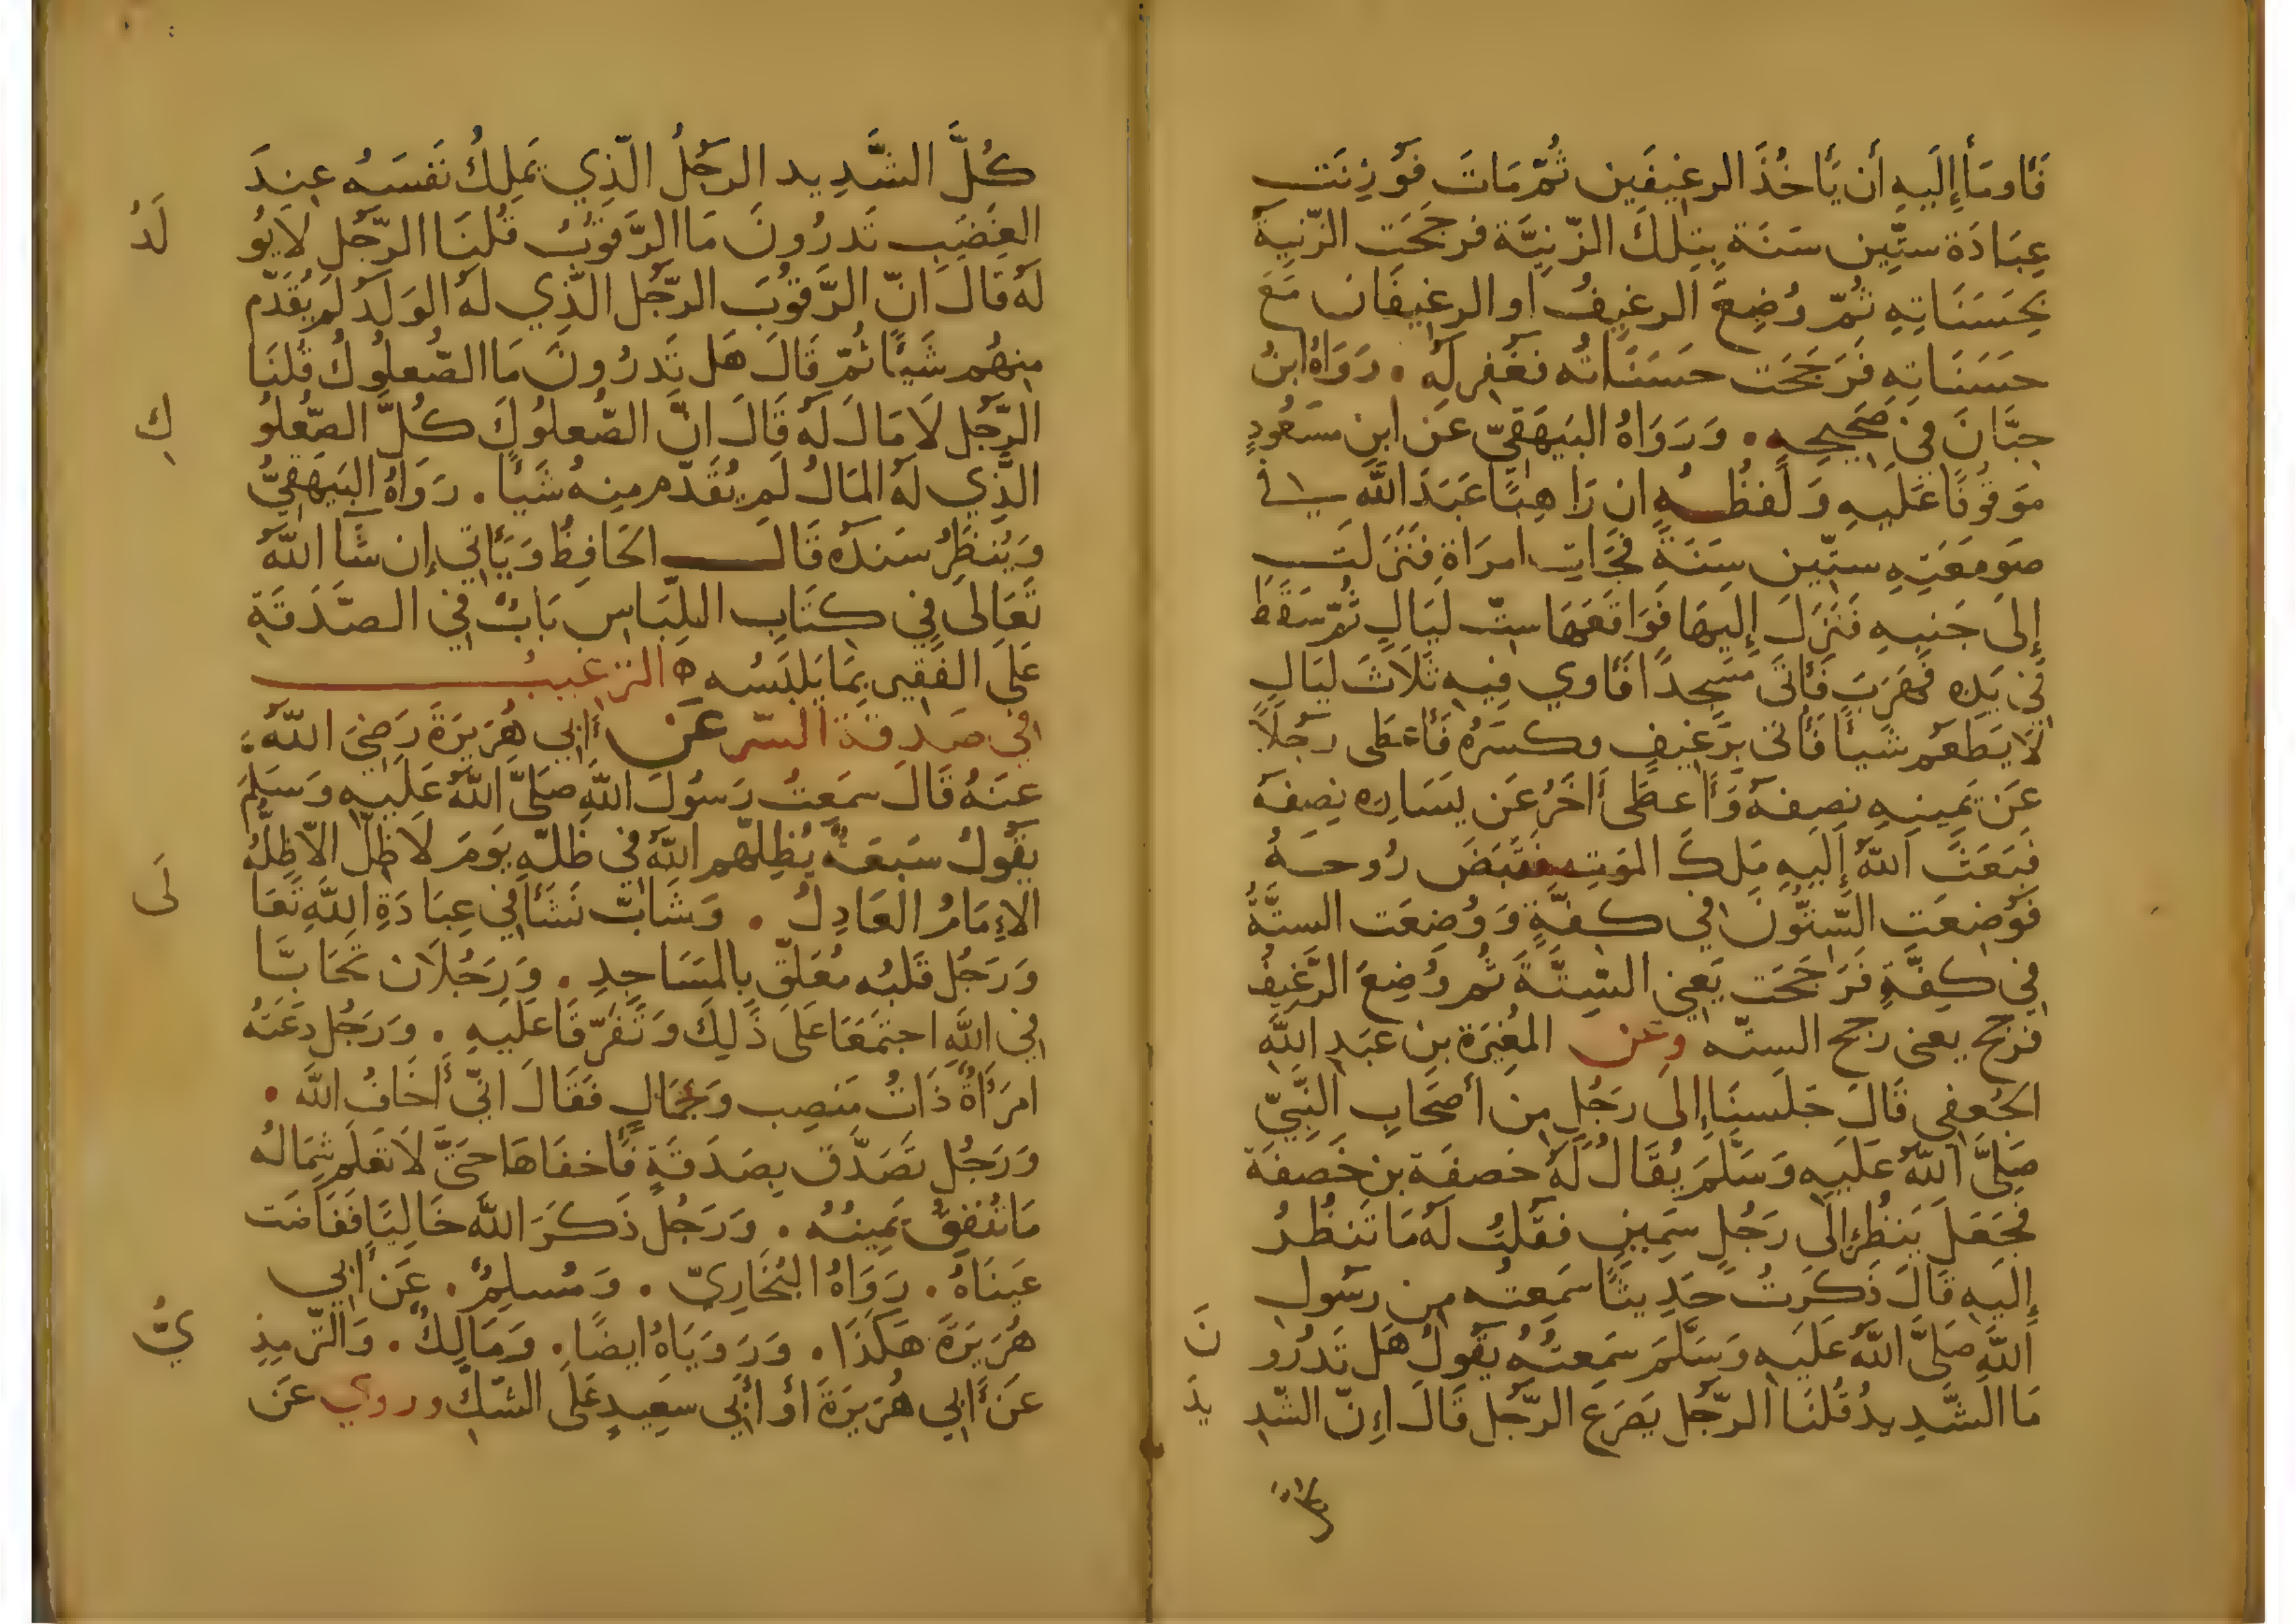 فَأومَأ إِلَيهِ أَن يَأخُذَ الرغِيفَينِ ثُمّ مَاتَ فَوُزِنَت
عِبَادَة ستِّين سَنَة بِتِلكَ الزّنِيَّة فرجَحَت الزّنيَة
بِحَسَنَاتِهِ ثُمّ وُضِعَ الرغِيفُ او الرغِيفَان مَعَ
حسَنَاتِهِ فَرَجَحَت حَسَنَاتُه فغُفِر لَه . رَوَاهُ ابنُ
حِبَّانَ فِي صَحِيحِهِ . وَرَوَاهُ البَيهَقِيّ عَن ابنِ مسعُودٍ
مَوقُوفًا عَلَيهِ وَلَفظُهُ ان رَاهِبًا عَبَدَ اللَّه في
صَومَعَتِهِ ستّين سَنَةً فَجَاءت امرَاة فَنَزَلَت
إِلَى جَنبِهِ فَنَزَلَ إِلَيهَا فَوَاقَعَهَا ستّ لَيَالٍ ثُمّ سَقَطَ
فِي يَدِه فَهَرَبَ فَأتَى مَسجِدًا فَأوي فِيهِ ثَلَاثَ لَيَالٍ
لَا يَطعَم شَيأً فَأُتى بِرَغِيفٍ فكسَرَهُ فَأعطَى رَجُلًا
عَن يَمِينِهِ نِصفَه وَأَعطَى أَخَرُ عَن يَسَارِه نِصفَه
فبَعَثَ اللَّهُ إِلَيهِ مَلكَ المَوتِ فَقَبَضَ رُوحَهُ
فَوُضِعَت السّتُّونَ فِي كفَّةٍ وَوُضِعَت الستَّةُ
فِي كِفَّةٍ فَرَجَحَت يَعنِي السِّتَّةَ ثُم وُضِعَ الرَّغِيفُ
فرَجَح يعنى رجح الستّه وعَن المُغِيَرة بنِ عَبَدِ اللَّهِ
الجُعفِي قَالَ جَلَسنَا إِلى رَجُلٍ مِن أَصحَابِ النَّبِيّ
صَلَّى اللَّهُ عَلَيهِ وَسَلَّمَ يُقَالُ لَهُ خصفَة بن خَصفَة
فجَعَلَ يَنظُر إِلَى رَجُلٍ سَمِينٍ فقُلتُ لَهُ مَا تَنظُرُ
إِلَيهِ قَالَ ذَكَرتُ حَدِيثًا سَمِعتُه مِن رسُولِ
اللَّهِ صَلَّى اللَّهُ عَلَيهِ وَسَلَّمَ سَمِعتُهُ يقُولُ هَل تَدرُو نَ
مَا الشَّدِيدُ قُلنَا الرّجُل يَصرَع الرّجُل قَالَ إِنّ الشّدِ يدَ
كُلَّ الشَّدِيد الرّجُلُ الّذِي يَملِكُ نَفسَهُ عِندَ
الغَضَبِ تَدرُونَ مَا الرَّقُوبُ قُلنَا الرّجُل لَا يُو لَدُ
لَه قَالَ انّ الرَّقُوبَ الرّجُل الّذِي لَهُ الوَلَدُ لَم يُقَدّم
مِنهُم شَيًا ثُمّ قَالَ هَل تَدرُونَ مَا الصّعلُوكُ قُلنَا
الرّجُل لَا مَالَ لَهُ قَالَ انّ الصّعلُوكَ كُلَّ الصّعلُو كِ
الّذِي لَهُ المَالُ لَم يُقَدّم مِنهُ شَيًا . رَوَاهُ البَيهَقِيُّ
وَيُنظَرُ سَندُه قَالَ الحَافِظُ وَيَأتي إِن شَا اللَّهُ
تَعَالى فِي كِتَابِ اللِّبَاسِ بَابٌ فِي الصَّدَقَةِ
عَلَى الفَقِيرِ بِمَا يَلبَسُه ه الترغيبُ
فِي صَدقَة السّر عَن أَبي هُرَيرَةَ رَضِيَ اللَّهُ
عَنهُ قَالَ سَمِعتُ رَسُولَ اللَّهِ صَلَّى اللَّهُ عَلَيهِ وَسَلَّمَ
يقُولُ سَبعَةٌ يُظِلّهُم اللَّهُ فِي ظلّه يَومَ لَا ظِلّ الّا ظِلّهُ
الإِمَامُ العَادِلُ . وَشَابّ نَشَأ فِي عِبَادَةِ اللَّهِ تَعَا لَى
وَرَجُل قَلبُه مُعَلّق بِالمَسَاجِدِ . وَرَجُلَان تَحَابَّا
فِي اللَّهِ اجتَمَعَا عَلَى ذَلِكَ وَتَفَرّقَا عَلَيهِ . وَرَجُل دعَتهُ
امرَأةٌ ذَاتُ مَنصِب وَجمَالٍ فَقَالَ انّي أَخَافُ اللَّه .
وَرَجُل تَصَدَّقَ بِصَدَقَةٍ فَأخفَاهَا حَتَّى لَا تَعلَم شِمَالُه
مَا تُنفِقُ يَمِينُهُ . وَرَجُلٌ ذَكَرَ اللَّهَ خَالِيًا فَفَاضَت
عَينَاهُ . رَوَاهُ البُخَارِيّ . وَمُسلِمٌ . عَن أَبِي
هُرَيرَةَ هَكَذَا . وَرَوَيَاهُ ايضًا . وَمَالِكٌ . وَالتّرمِذِ يُّ
عَن أَبِي هُرَيرَةَ أَو أَبِي سعِيدٍ عَلَى الشّكِّ وروي عَن